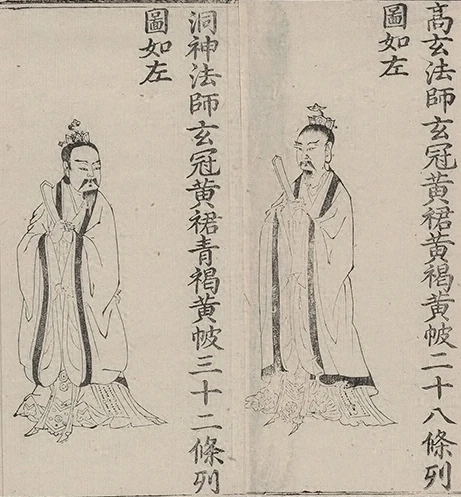 高玄法師玄冠黃裙黃褐黃帔二十八條列
圖如左
洞神法師玄冠黃裙青褐黃帔三十二條列
圖如左